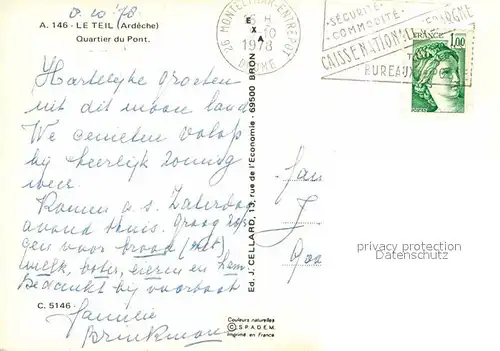 8.10.'78
A. 146 - LE TEIL (Ardèche)
Quartier du Pont.
Hartelijke groeten
uit dit mooie land
We genieten volop
bij heerlijk zonnig
weer.
Komen a.s. Zaterdag
avond thuis. Graag
gen voor brood (wit)
melk, boter, eieren en
Bedankt bij voorbaat
C. 5146
Familie
Brinkman
Ed. J. CELLARD, 13, rue de l'Economie - 69500 BRON
Couleurs naturelles
© S.P.A.D.E.M.
Imprimé en France
26 MONTELIMAR-ENTREPOT
1978
DROME
SÉCURITÉ
COMMODITÉ
CAISSE NATIONALE
EPARGNE
BUREAUX
FRANCE
1,00
privacy protection
Datenschutz